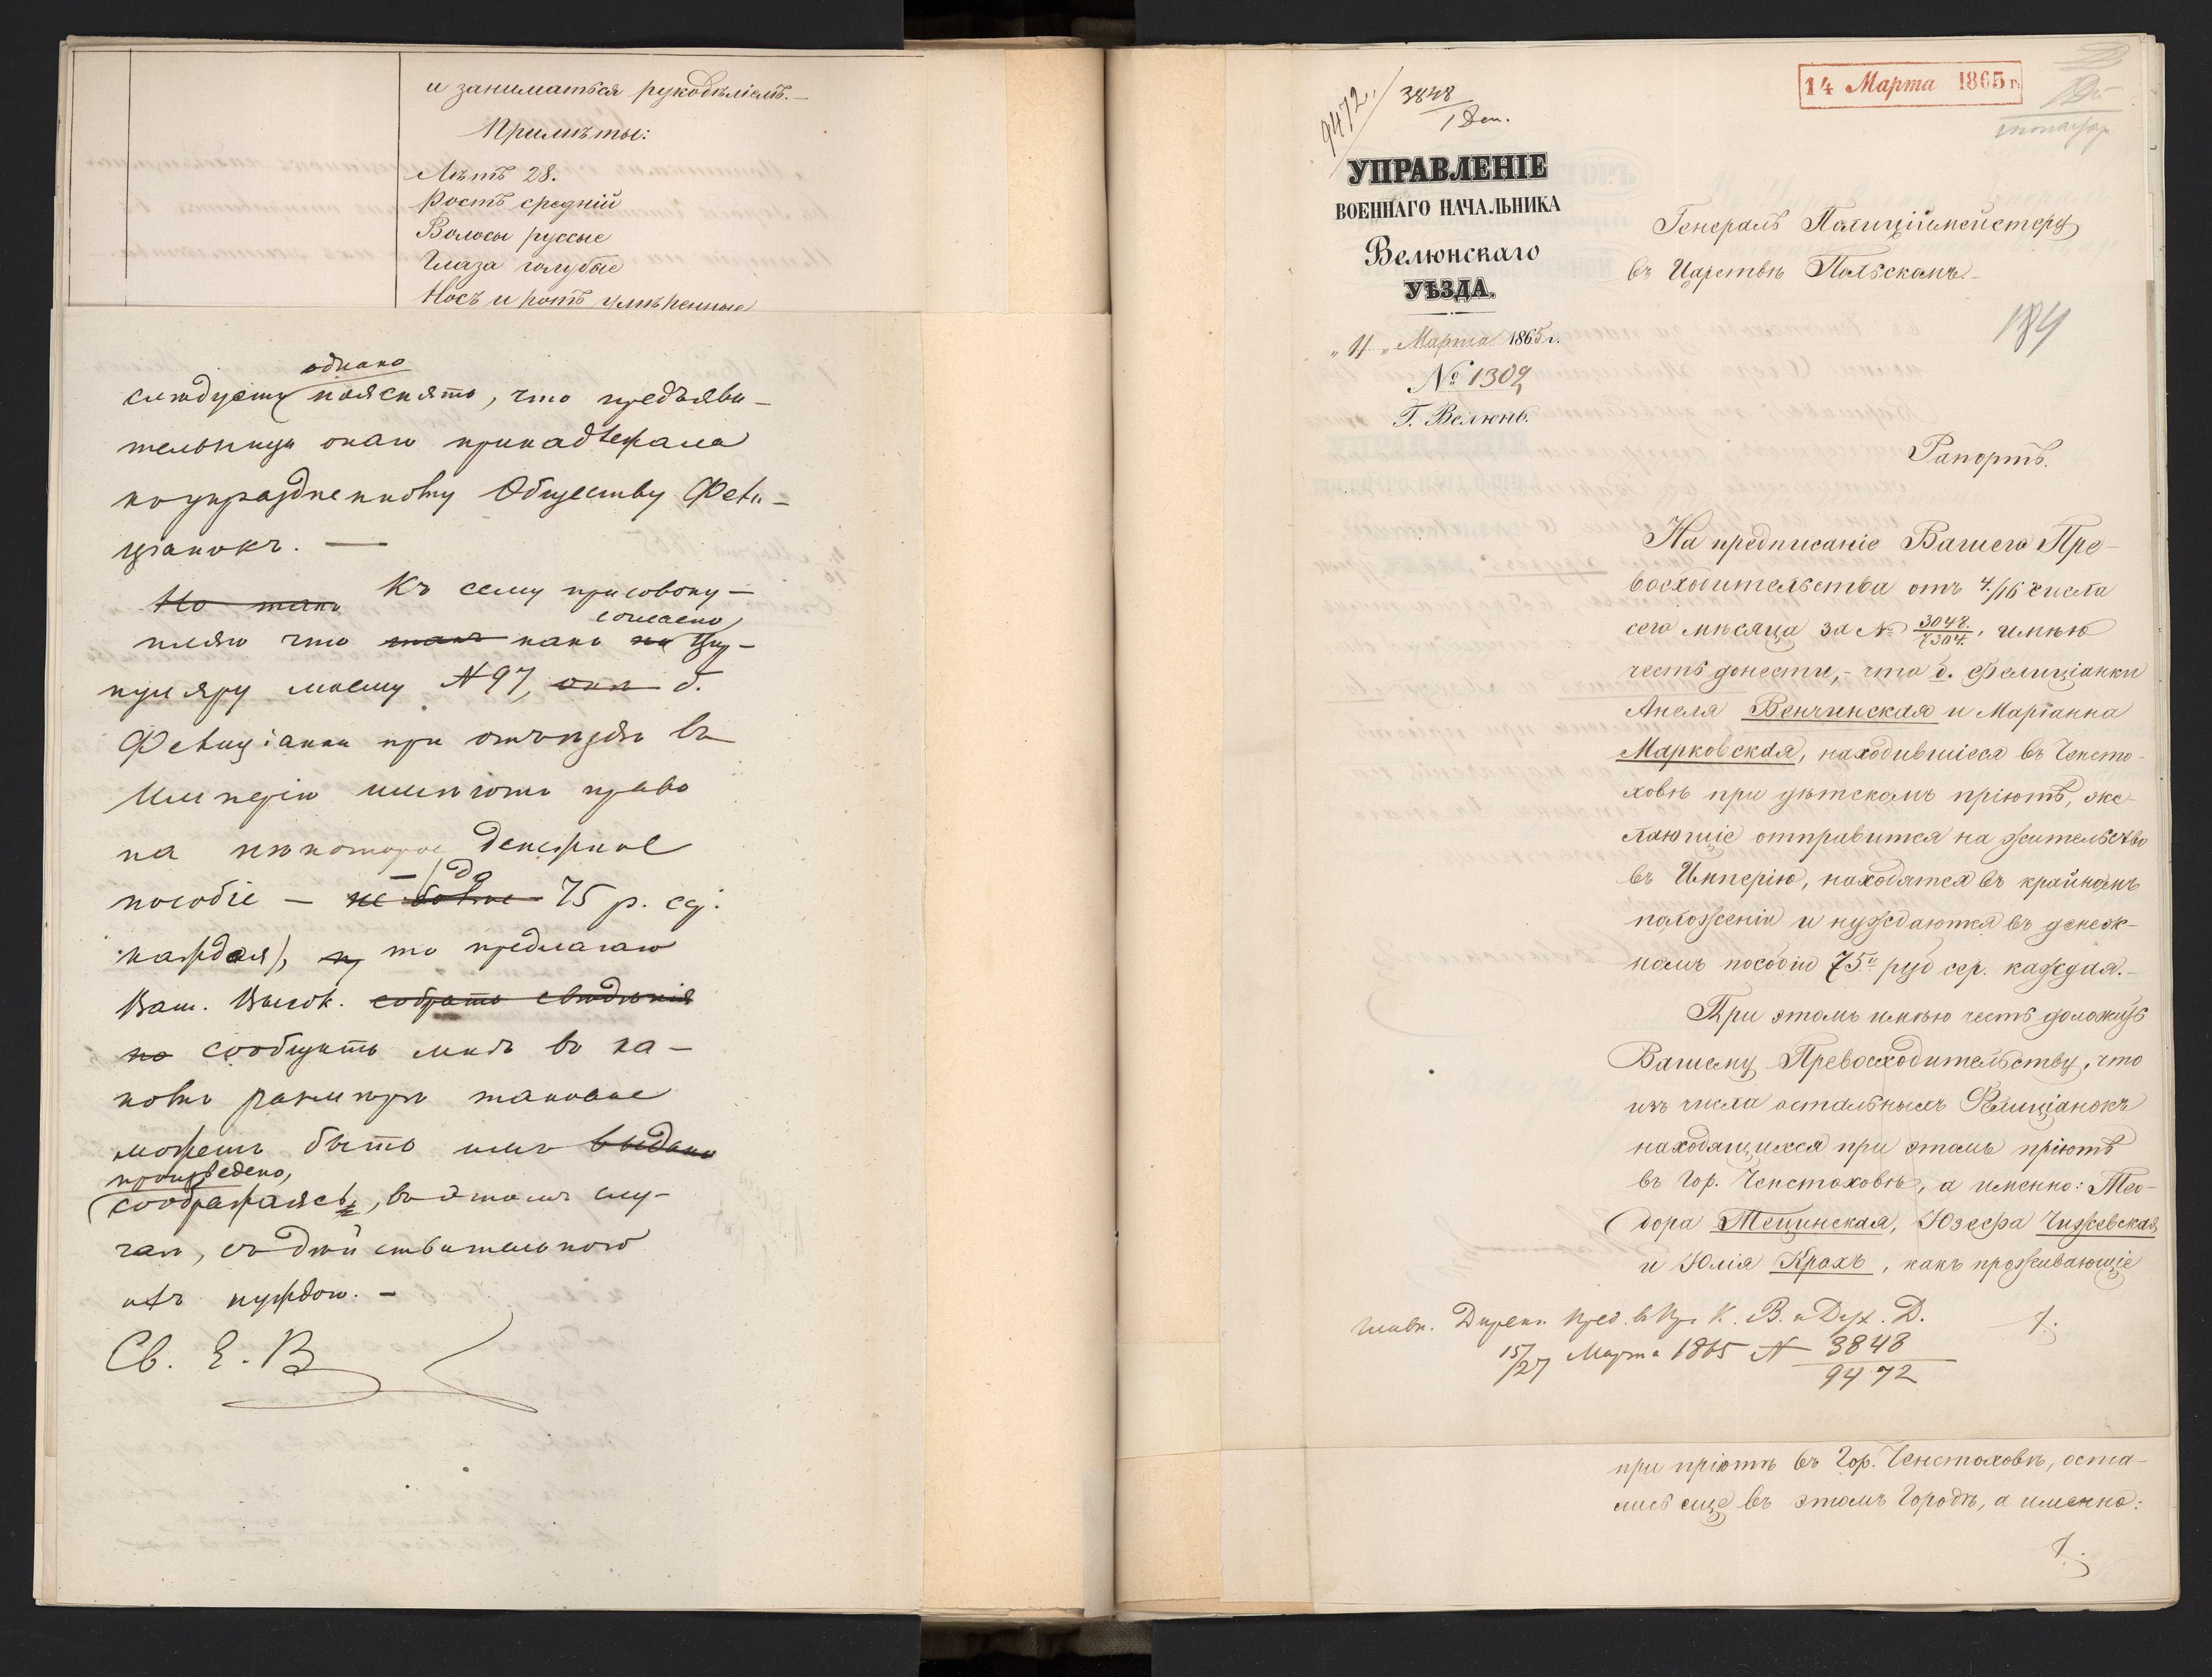 и заниматься рукодѣліемъ.—
Примѣты:
Лѣтъ 28.
Ростъ средній
Волосы руссые
Глаза голубые
Носъ и ротъ умѣренные
однако
следуетъ пояснять, что предъяви-
тельница онаго принадлежала
къ упраздненному Обществу Фели-
ціанокъ. —
Но такъ Къ сему присовоку-
согласно
пляю что такъ какъ по Цир-
куляру моему №97, они б.
Фелиціанки при отъѣздѣ въ
Имперію имѣютъ право
на нѣкоторое денежное
до
пособіе — не более 75 р. сер.
каждая), то предлагаю
Ваш. Высок. собрать свѣдѣнія
по сообщить мнѣ въ ка-
комъ размѣрѣ таковое
можетъ быть имъ выдано
произведено,
соображаясь, въ этомъ слу-
чаѣ, съ дѣйствительною
ихъ нуждою. —
Св. Е. В
9472 / 3848
1 Деп.
14 Марта 1865 г.
УПРАВЛЕНІЕ
ВОЕННАГО НАЧАЛЬНИКА
Велюнскаго
УѢЗДА.
"11" Марта 1865 г.
№ 1309
Г. Велюнь.
Генералъ Полиціймейстеру
въ Царствѣ Польскомъ.
184
Рапортъ.
На предписаніе Вашего Пре-
восходительства отъ 4/16 числа
сего мѣсяца за № 3048/7304, имѣю
честь донести, - что б. Фелиціанки
Анеля Венчинская и Маріанна
Марковская, находившіеся въ Ченсто-
ховѣ при дѣтскомъ пріютѣ, же-
лающіе отправится на жительство
въ Имперію, находятся въ крайнемъ
положеніи и нуждаются въ денеж-
номъ пособіи 75ъ руб сер. каждая.—
При этомъ имѣю честь доложить
Вашему Превосходительству, что
изъ числа остальныхъ Фелиціанокъ
находящихся при этомъ пріютѣ
въ Гор. Ченстоховѣ, а именно: Тео-
дора Тецинская, Юзефа Чижевская
и Юлія Крохъ, какъ проживающіе
Директ. Пред. въ К. В. и Дух. Д.
15/27 Марта 1865 № 3848
9472
при пріютѣ въ Гор. Ченстоховѣ, оста-
лись еще въ этомъ Городѣ, а именно: